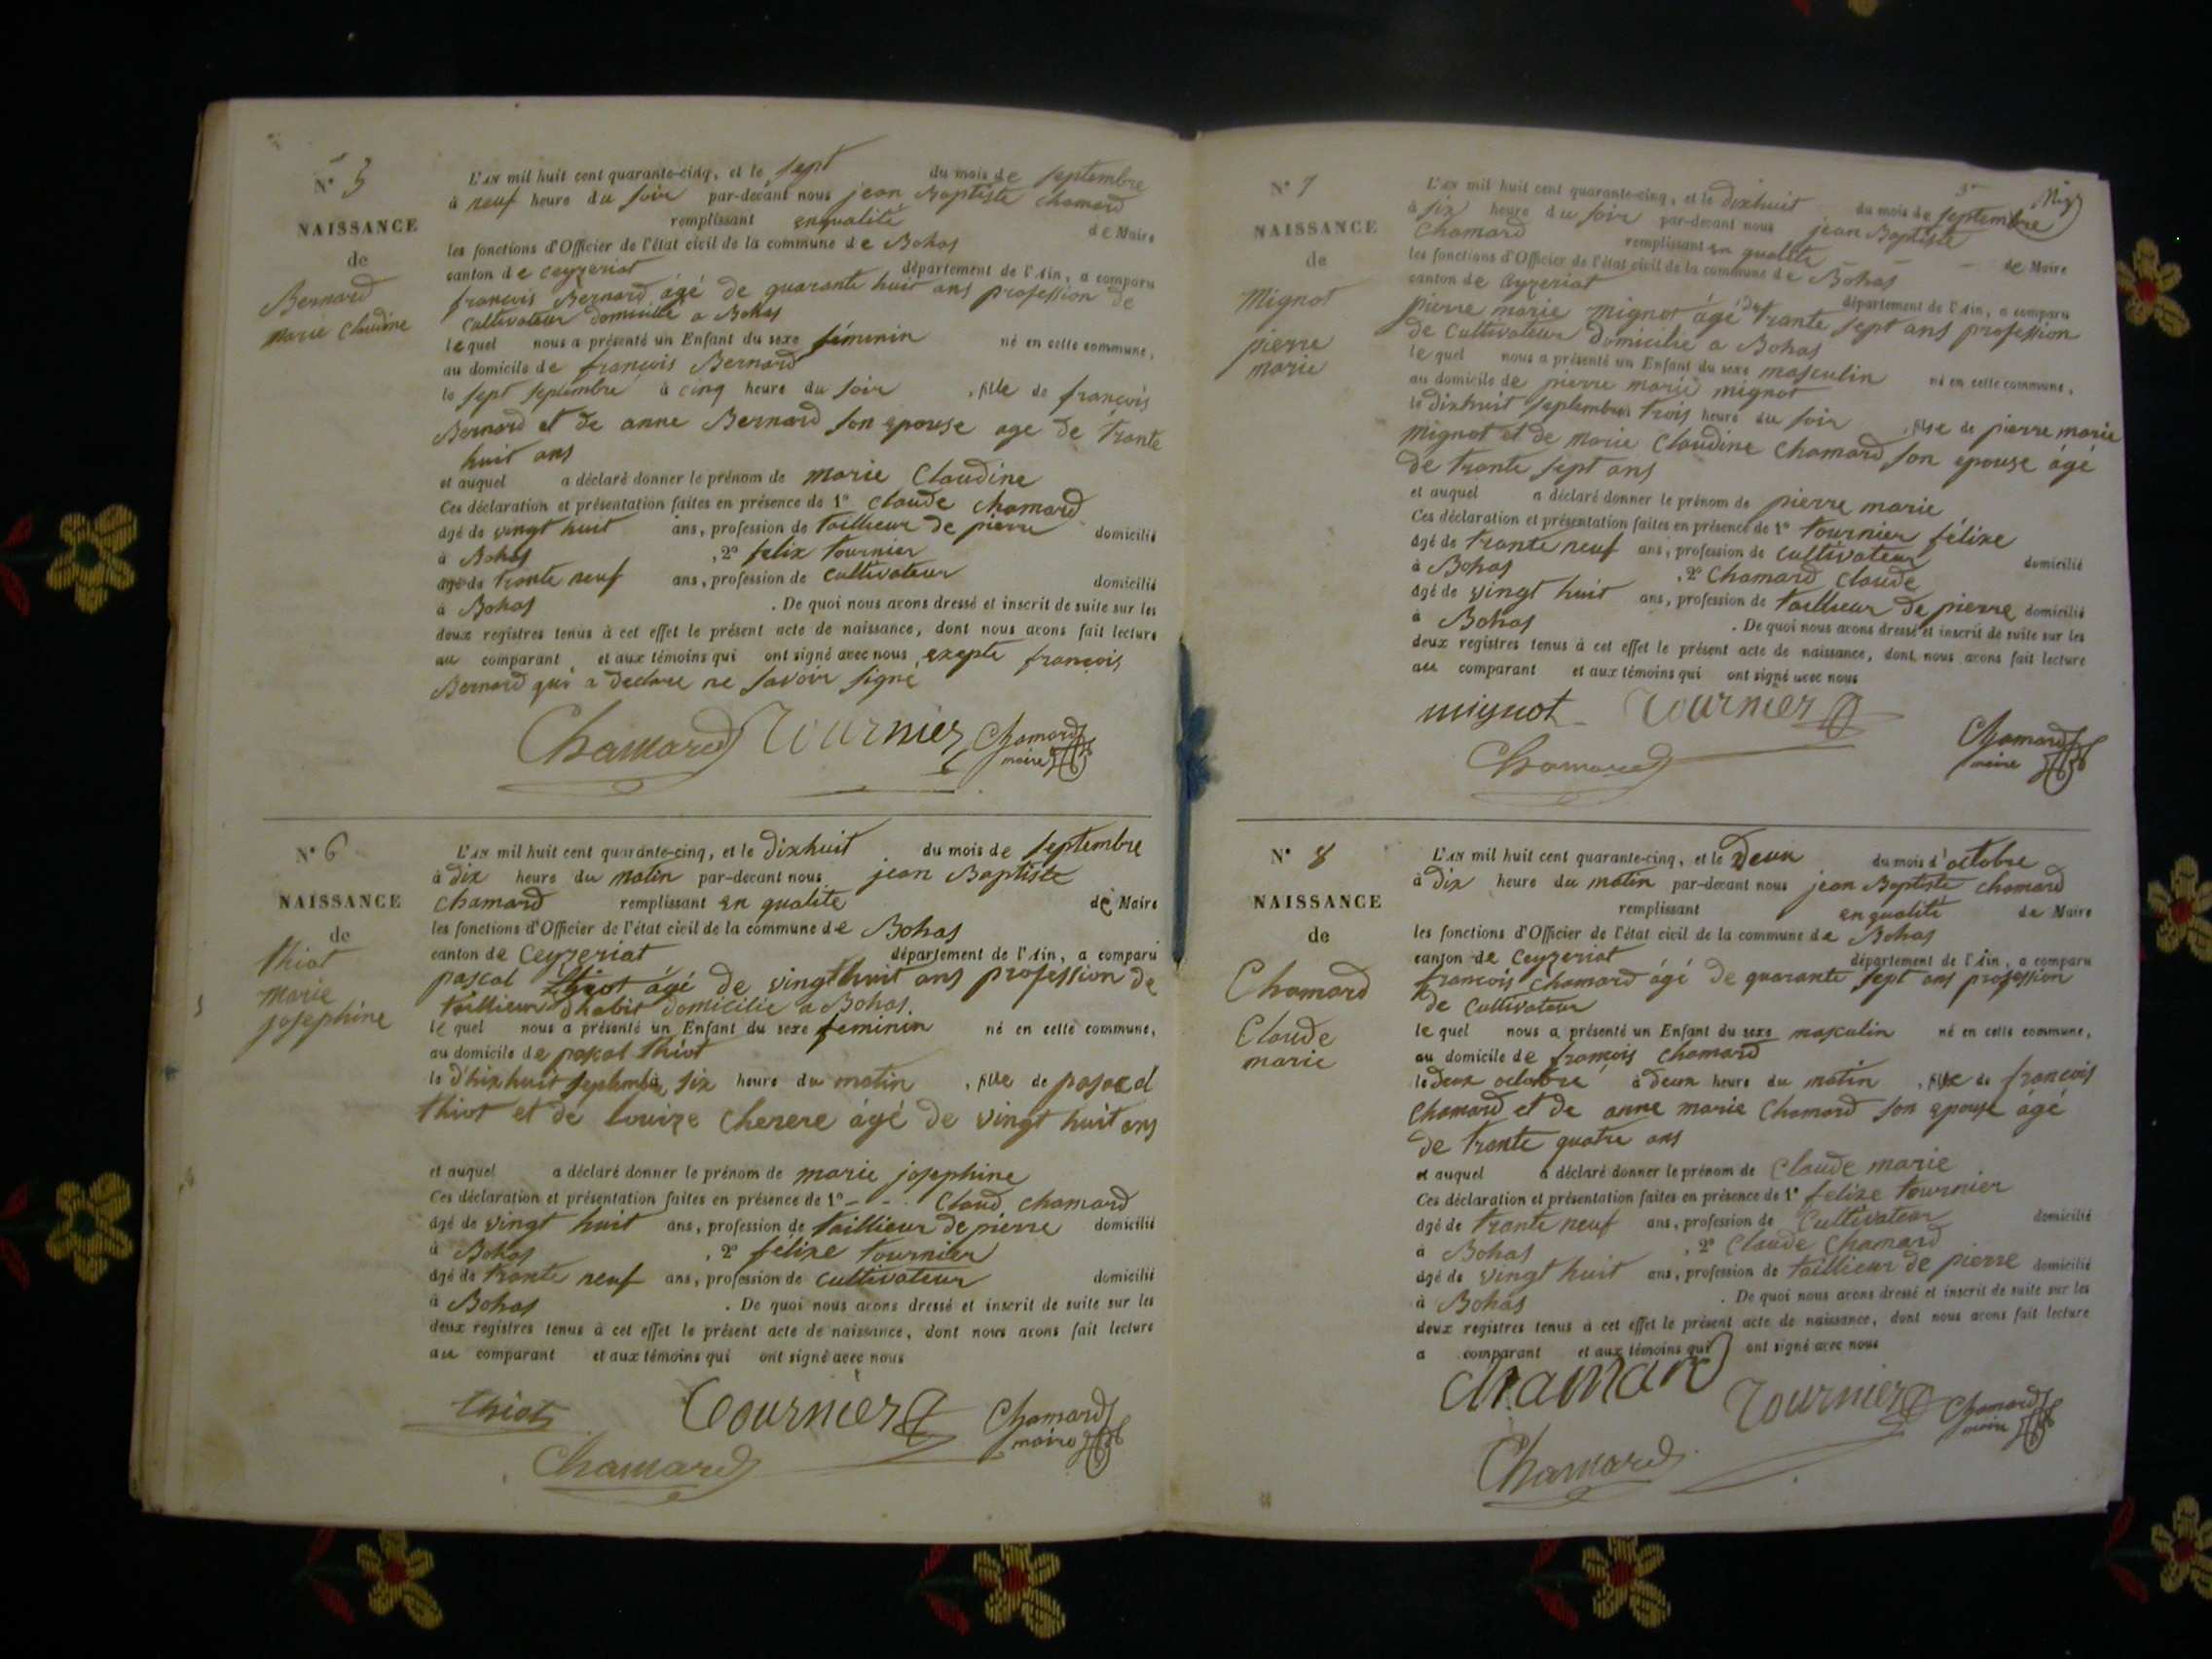 N° 5
NAISSANCE
de
Bernard
marie Claudine
L'AN mil huit cent quarante-cinq, et le sept du mois de septembre
à neuf heure du soir par-devant nous jean Baptiste chamard
remplissant enqualité de Maire
les fonctions d'Officier de l'état civil de la commune de Bohas
canton de ceyzeriat département de l'Ain, a comparu
francois Bernard âgé de quarante huit ans profession de
Cultivateur domicilié a Bohas
lequel nous a présenté un Enfant du sexe féminin né en cette commune,
au domicile de francois Bernard
le sept septembre à cinq heure du soir , fille de francois
Bernard et de anne Bernard son epouse age de trante
huit ans
et auquel a déclaré donner le prénom de marie Claudine
Ces déclaration et présentation faites en présence de 1° claude chamard
âgé de vingt huit ans, profession de taillieur de pierre domicilié
à Bohas , 2° felix tournier
âgé de trante neuf ans, profession de cultivateur domicilié
à Bohas . De quoi nous avons dressé et inscrit de suite sur les
deux registres tenus à cet effet le présent acte de naissance, dont nous avons fait lecture
au comparant, et aux témoins qui ont signé avec nous, exepte francois
Bernard qui a declare ne savoir signe
Chamard Tournier Chamard
maire
N° 6
NAISSANCE
de
thiot
marie
josephine
L'AN mil huit cent quarante-cinq, et le dixhuit du mois de septembre
à dix heure du matin par-devant nous jean Baptiste
chamard remplissant en qualite de Maire
les fonctions d'Officier de l'état civil de la commune de Bohas
canton de Ceyzeriat département de l'Ain, a comparu
pascal thiot âgé de vingt huit ans profession de
taillieur d'habit domicilie a Bohas.
lequel nous a présenté un Enfant du sexe feminin né en cette commune,
au domicile de pascal thiot
le dhixhuit septembre à six heure du matin , fille de pascal
thiot et de louize cherere âgé de vingt huit ans
et auquel a déclaré donner le prénom de marie josephine
Ces déclaration et présentation faites en présence de 1° - - Claud chamard
âgé de vingt huit ans, profession de taillieur de pierre domicilié
à Bohas , 2° félixe tournier
âgé de trante neuf ans, profession de cultivateur domicilié
à Bohas . De quoi nous avons dressé et inscrit de suite sur les
deux registres tenus à cet effet le présent acte de naissance, dont nous avons fait lecture
au comparant et aux témoins qui ont signé avec nous
thiot Tournier Chamard
maire
Chamard
N° 7
NAISSANCE
de
Mignot
pierre
marie
L'AN mil huit cent quarante-cinq, et le dixhuit du mois de septembre
à six heure du soir par-devant nous jean Baptiste
Chamard remplissant en qualite de Maire
les fonctions d'Officier de l'état civil de la commune de Bohas
canton de Ceyzeriat département de l'Ain, a comparu
pierre marie mignot âgé de trante sept ans profession
de Cultivateur domicilie a Bohas
lequel nous a présenté un Enfant du sexe masculin né en cette commune,
au domicile de pierre marie mignot
le dixhuit septembre à trois heure du soir , fils de pierre marie
mignot et de marie Claudine Chamard son epouse âgé
de trante sept ans
et auquel a déclaré donner le prénom de pierre marie
Ces déclaration et présentation faites en présence de 1° tournier félixe
âgé de trante neuf ans, profession de cultivateur domicilié
à Bohas , 2° Chamard claude
âgé de vingt huit ans, profession de taillieur de pierre domicilié
à Bohas . De quoi nous avons dressé et inscrit de suite sur les
deux registres tenus à cet effet le présent acte de naissance, dont nous avons fait lecture
au comparant et aux témoins qui ont signé avec nous
mignot Tournier
Chamard
Chamard
maire
N° 8
NAISSANCE
de
Chamard
Claude
marie
L'AN mil huit cent quarante-cinq, et le Deux du mois d'octobre
à dix heure du matin par-devant nous jean Baptiste chamard
remplissant enqualité de Maire
les fonctions d'Officier de l'état civil de la commune de Bohas
canton de Ceyzeriat département de l'Ain, a comparu
francois chamard âgé de quarante sept ans profession
de Cultivateur
lequel nous a présenté un Enfant du sexe masculin né en cette commune,
au domicile de francois chamard
le deux octobre à deux heure du matin , fils de francois
Chamard et de anne marie Chamard son epouse âgé
de trante quatre ans
et auquel a déclaré donner le prénom de Claude marie
Ces déclaration et présentation faites en présence de 1° felixe tournier
âgé de trante neuf ans, profession de Cultivateur domicilié
à Bohas , 2° Claude Chamard
âgé de vingt huit ans, profession de taillieur de pierre domicilié
à Bohas . De quoi nous avons dressé et inscrit de suite sur les
deux registres tenus à cet effet le présent acte de naissance, dont nous avons fait lecture
a comparant et aux témoins qui ont signé avec nous
chamard Tournier Chamard
maire
Chamard